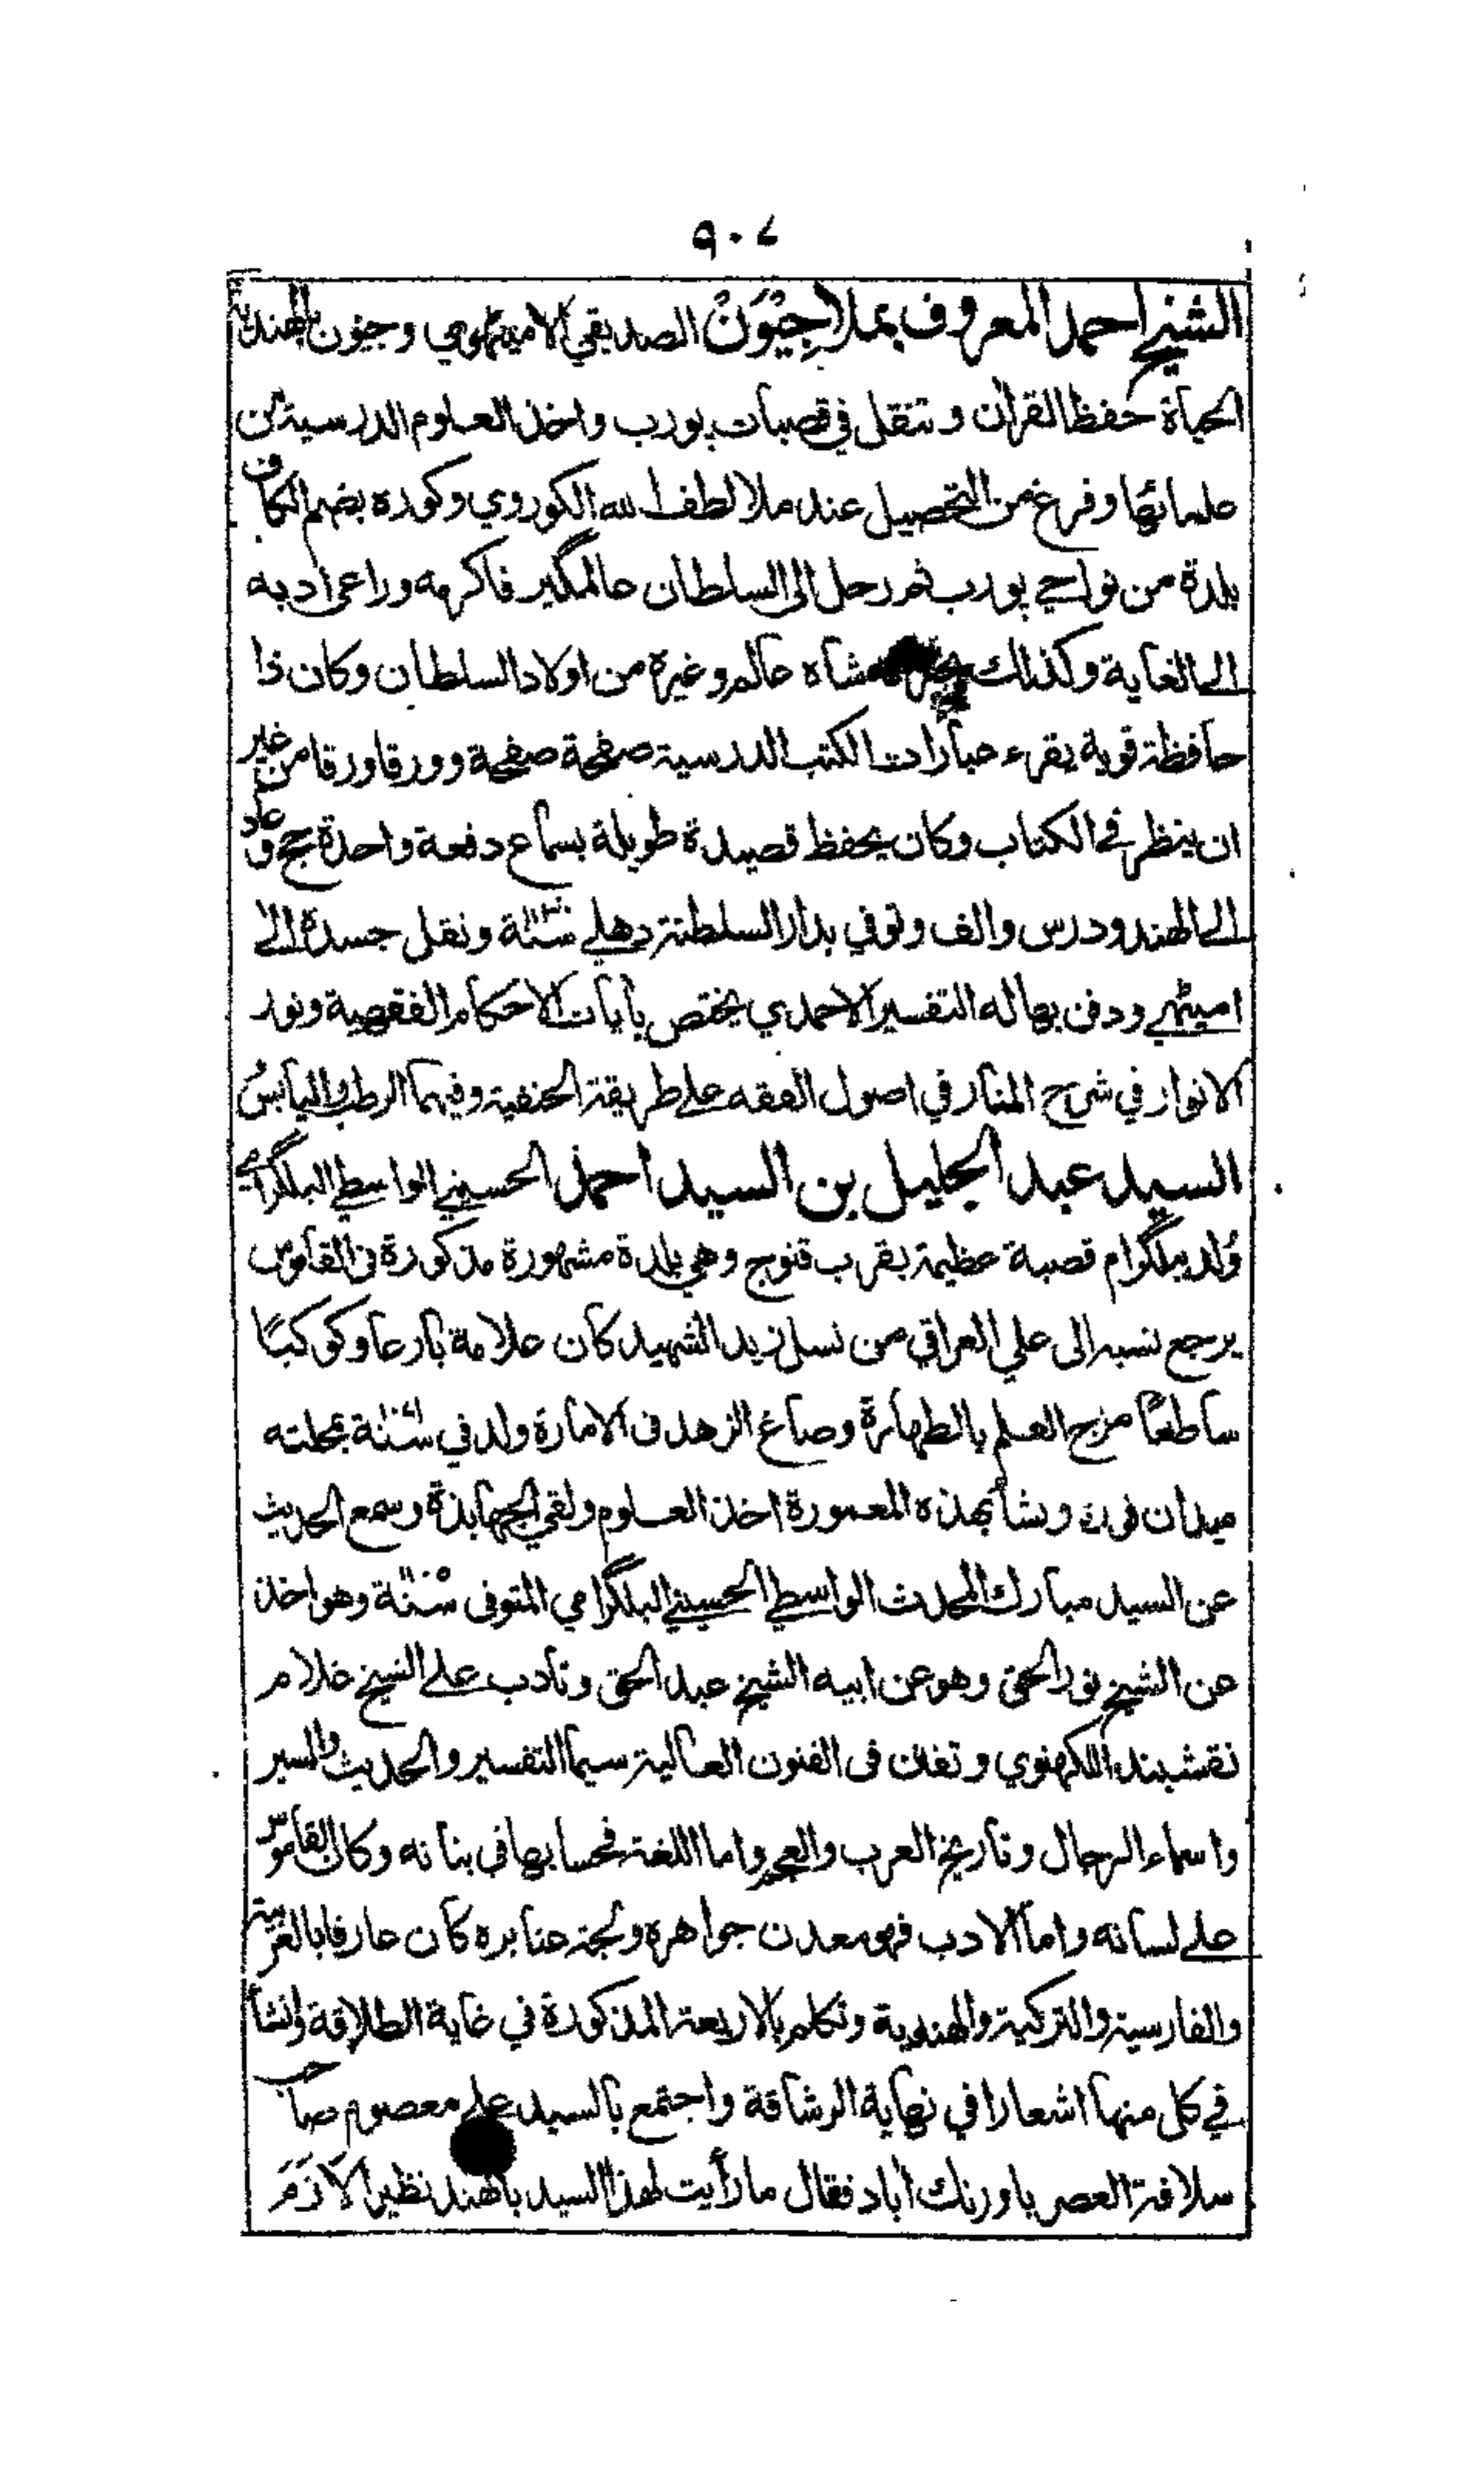 ٩٠٧
الشيخ احمد المعروف بملا جِيْوَنْ الصديقي الاميتهوي وجيون بالهندية
الحياة حفظ القرآن وتنقل في قصبات پورب واخذ العلوم الدرسية عن
علمائها وفرغ من التحصيل عند ملا لطف الله الكوروي وكوره بضم الكاف
بلدة من نواحي پورب ثم رحل الى السلطان عالمگير فاكرمه وراعى ادبه
الى الغاية وكذلك شاه عالم وغيره من اولاد السلطان وكان ذا
حافظة قوية يقرء عبارات الكتب الدرسية صفحة صفحة وورقا ورقا من غير
ان ينظر في الكتاب وكان يحفظ قصيدة طويلة بسماع دفعة واحدة حج وعاد
الى الهند ودرس والف وتوفي بدار السلطنة دهلي سنة ونقل جسده الى
اميٹهي ودفن بها له التفسير الاحمدي يختص بآيات الاحكام الفقهية ونور
الانوار في شرح المنار في اصول الفقه على طريقة الحنفية وفيهما الرطب واليابس
السيد عبد الجليل بن السيد احمد الحسيني الواسطي البلگرامي
وُلد ببلگرام قصبة عظيمة بقرب قنوج وهي بلدة مشهورة مذكورة في القاموس
يرجع نسبه الى علي العراقي من نسل زيد الشهيد كان علامة بارعا وكوكبًا
ساطعًا مزج العلم بالطهارة وصاغ الزهد في الامارة ولد في سنة بمحلته
ميدان فوره ونشأ بهذه المعمورة اخذ العلوم ولقي الجهابذة وسمع الحديث
عن السيد مبارك المحدث الواسطي الحسيني البلگرامي المتوفى سنة وهو اخذ
عن الشيخ نور الحق وهو عن ابيه الشيخ عبد الحق وتأدب على الشيخ غلام
نقشبند اللكهنوي وتفنن في الفنون العالية سيما التفسير والحديث والسير
واسماء الرجال وتاريخ العرب والعجم واما اللغة فحسابها في بنانه وكان القاموس
على لسانه واما الادب فهو معدن جواهره ولجة عنابره كان عارفا بالعربية
والفارسية والتركية والهندية وتكلم بالاربعة المذكورة في غاية الطلاقة وانشأ
في كل منها اشعارا في نهاية الرشاقة واجتمع بالسيد علي معصوم صاحب
سلافة العصر باورنك آباد فقال ما رأيت لهذا السيد بالهند نظيرا لازَمَ